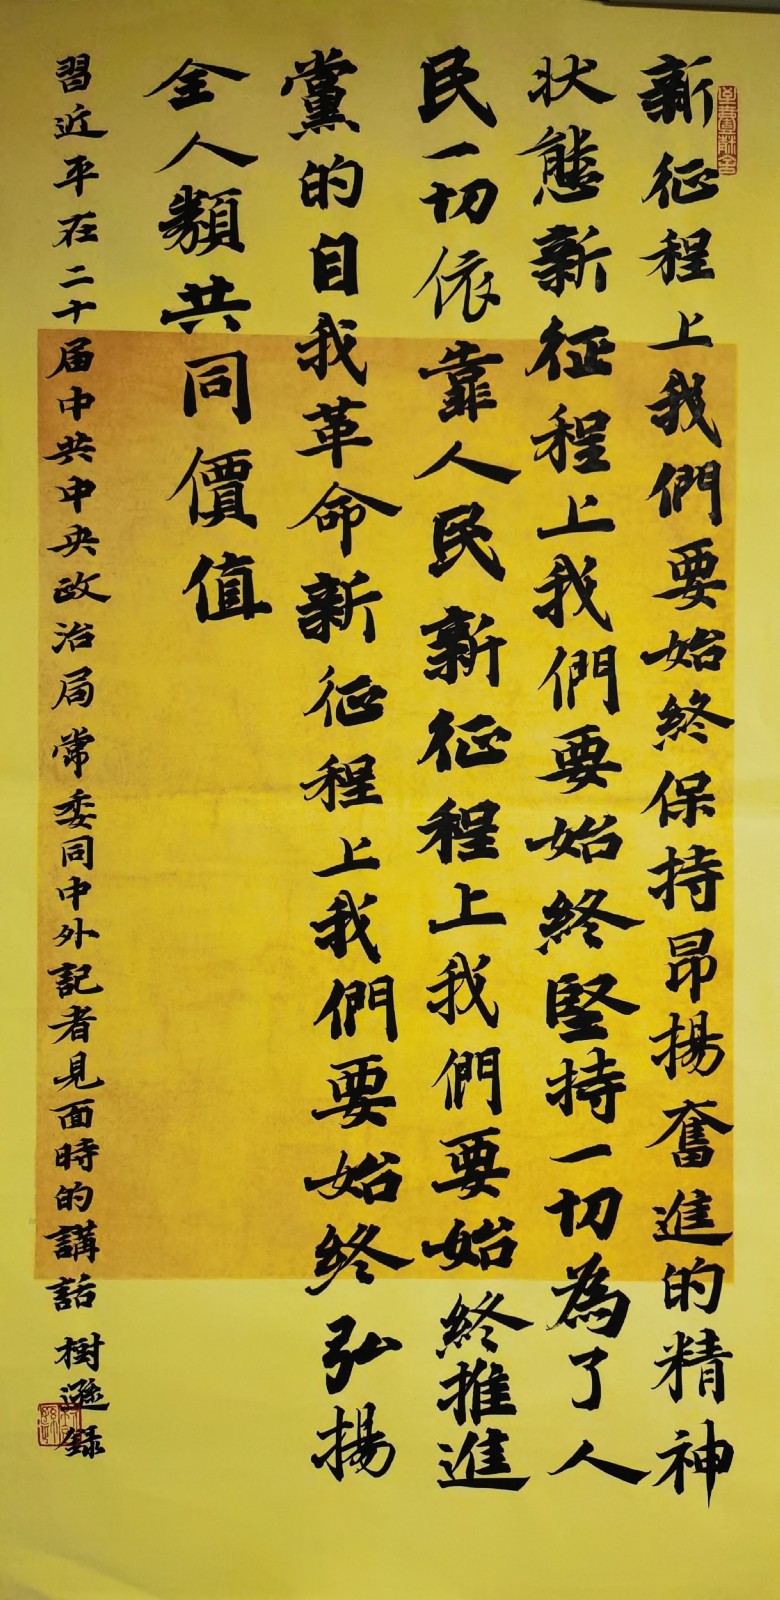 新征程上我們要始終保持昂揚奮進的精神
狀態新征程上我們要始終堅持一切為了人
民一切依靠人民新征程上我們要始終推進
黨的自我革命新征程上我們要始終弘揚
全人類共同價值
習近平在二十届中共中央政治局常委同中外記者見面時的講話 樹遜録